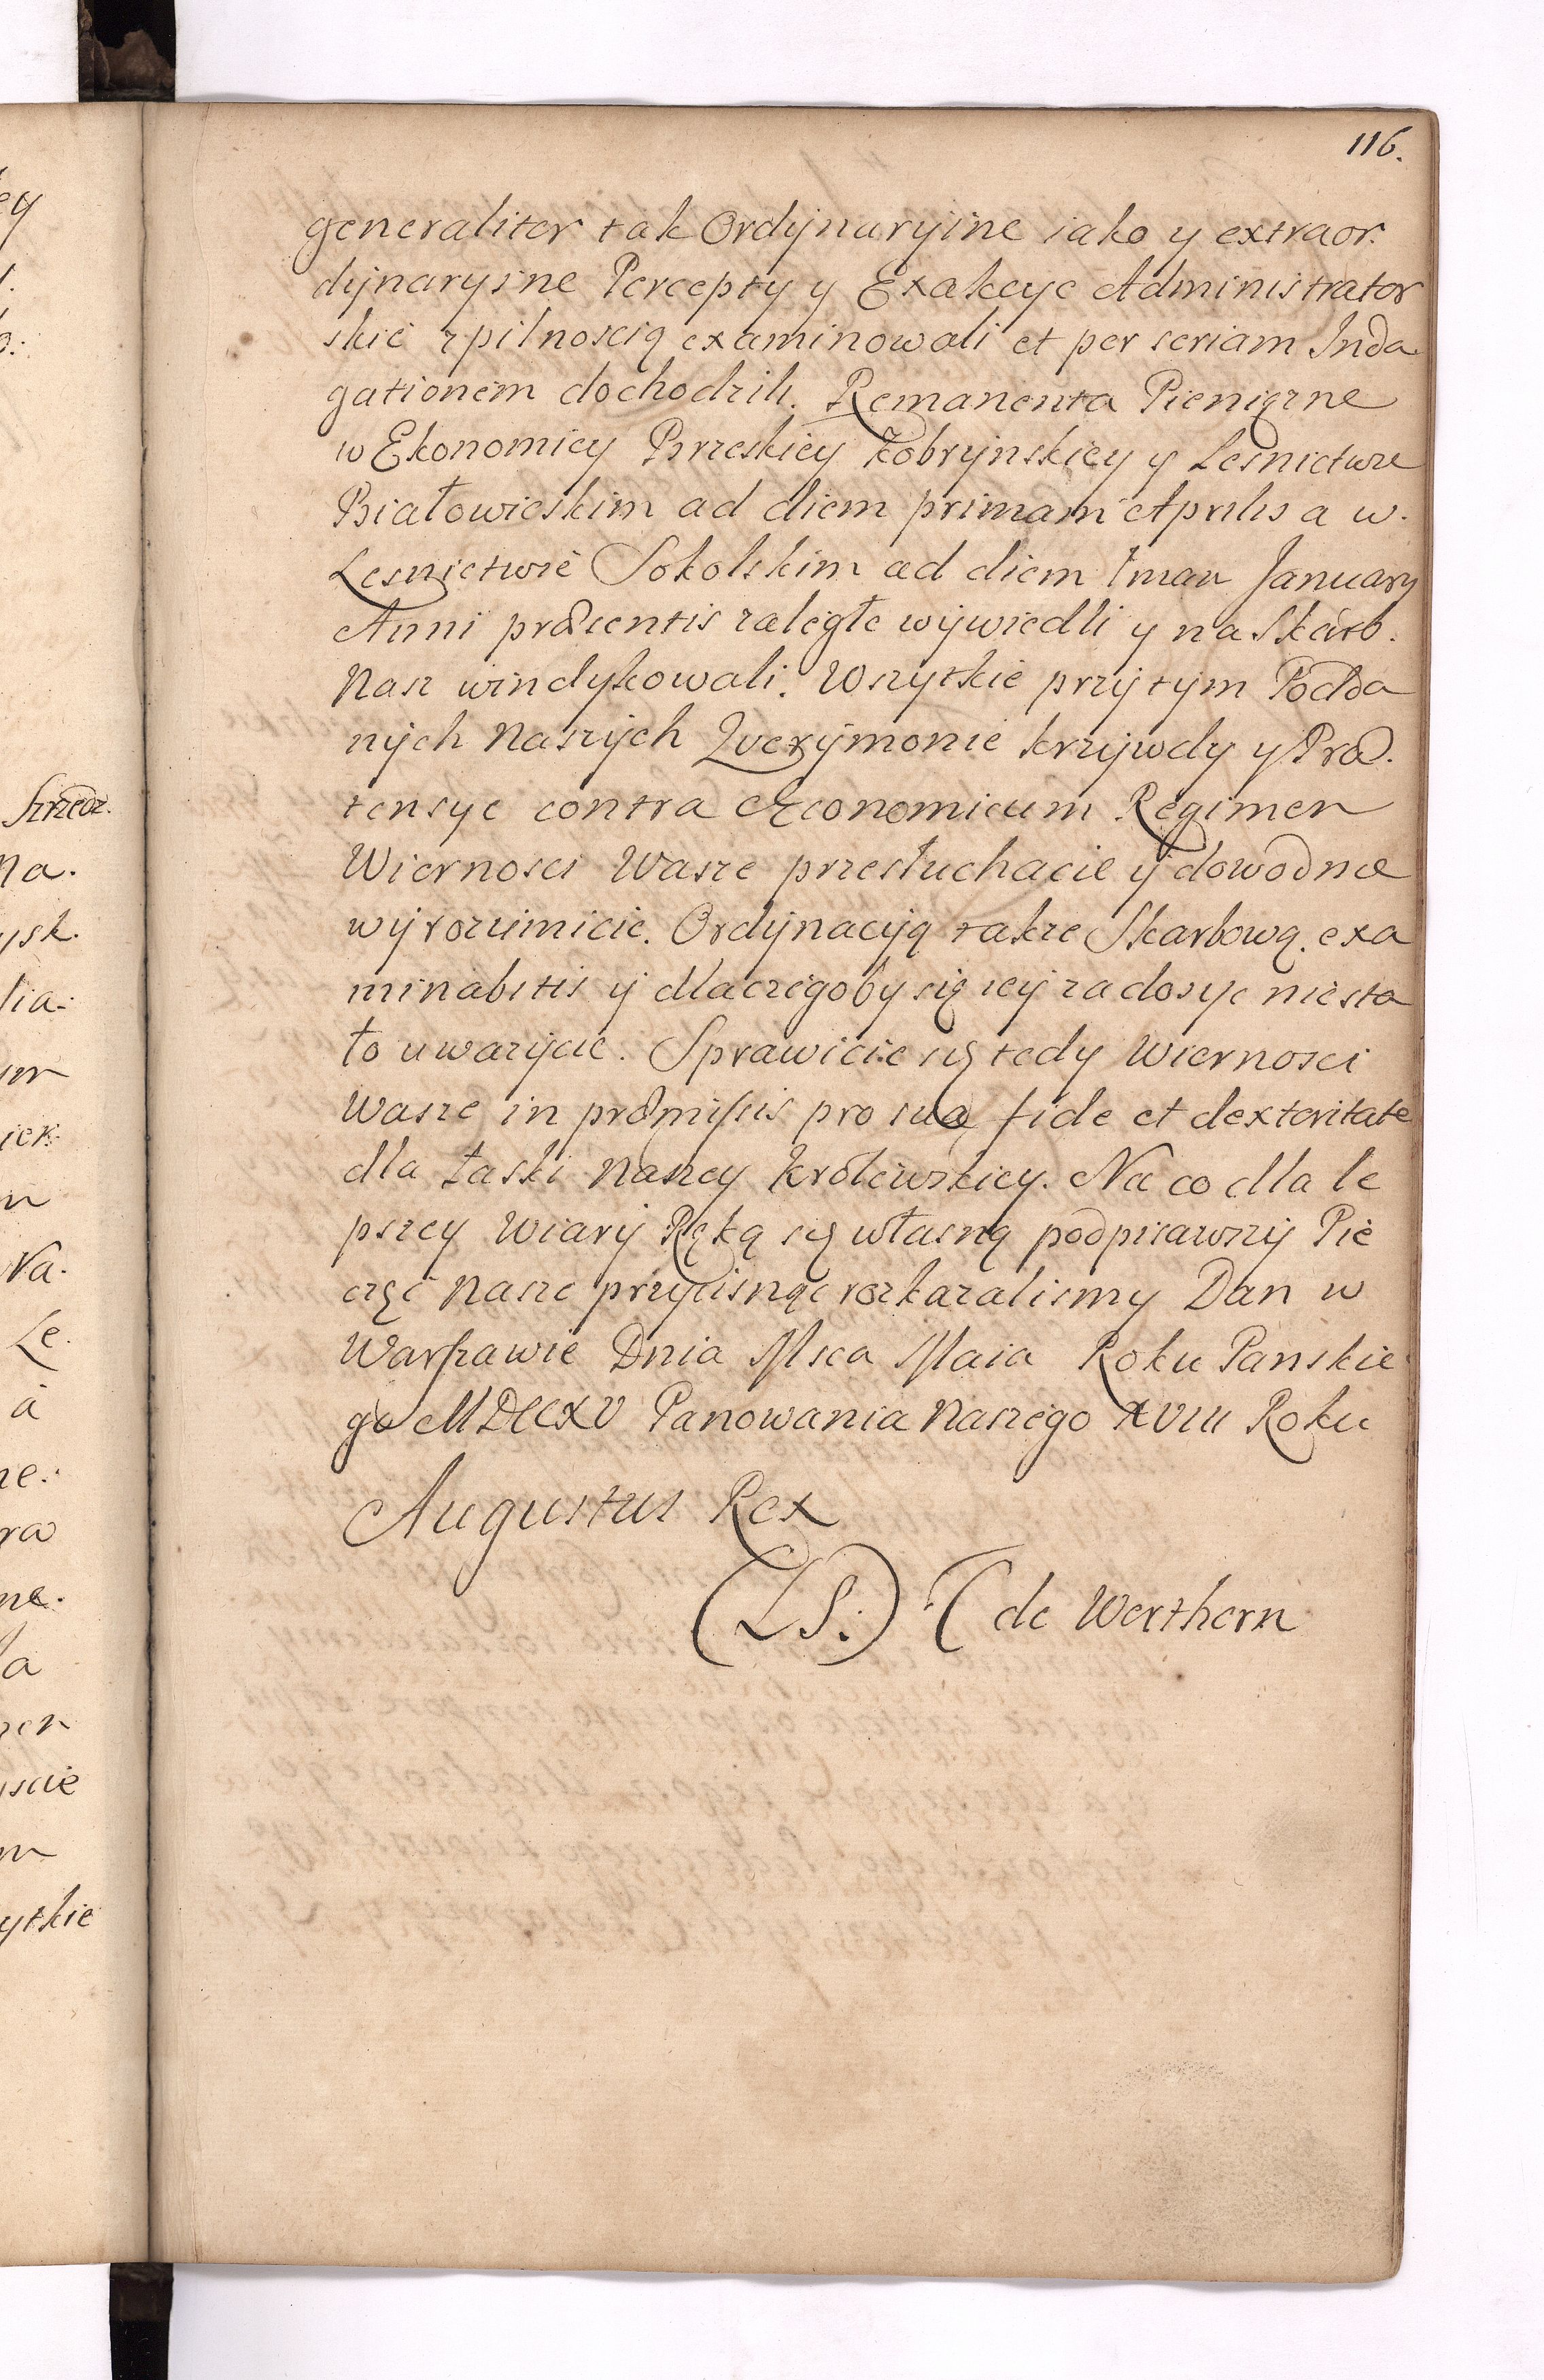 116.
generaliter tak Ordÿnaryine iako y extraor.
dÿnaryine Percepty y Exakcye Administrator
skie z pilnoscią examinowali et per seriam Inda
gationem dochodzili. Remanenta Pieniązne
w Ekonomiey Brzeskiey Kobrÿnskiey y Lesnictwie
Białowieskim ad diem primam Aprilis a w.
Lesnictwie Sokolskim ad diem 1mam January
Anni præsentis zaległe wÿwiedli y na Skarb.
Nasz windykowali. Wszytkie przÿtÿm Podda
nÿch Naszÿch Querÿmonie krzÿwdy y Præ.
tensye contra Œconomicum Regimen
Wiernosci Wasze przesłuchacie ÿ dowodnie
wÿrozumicie. Ordÿnacÿą takze Skarbową exa
minabitis ÿ dlaczegoby się ieÿ zadosyc niesta
ło uwazÿcie. Sprawicie się tedy Wiernosci
Wasze in præmissis pro sua fide et dexteritate
dla Łaski Naszey Krolewskiey. Na co dla le
pszey Wiarÿ Ręką się własną podpisawszÿ Pie
częć Nasze przycisnąc rozkazalismy Dan w
Warszawie Dnia Msca Maia Roku Panskie
go MDCCXV Panowania Naszego XVIII Roku
Augustus Rex
(LS.) de Werthern
ey
Strzedz.
Na.
ysk.
lia.
Na.
Le.
a
ne.
la
scie
ytkie